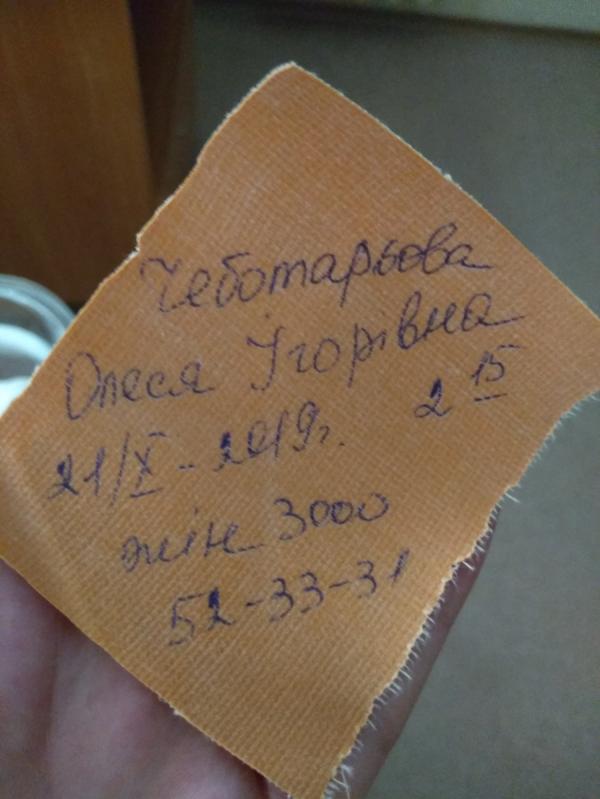 Чеботарьова
Олеся Ігорівна
21/X - 2019г. 2 15
жін 3000
52-33-31